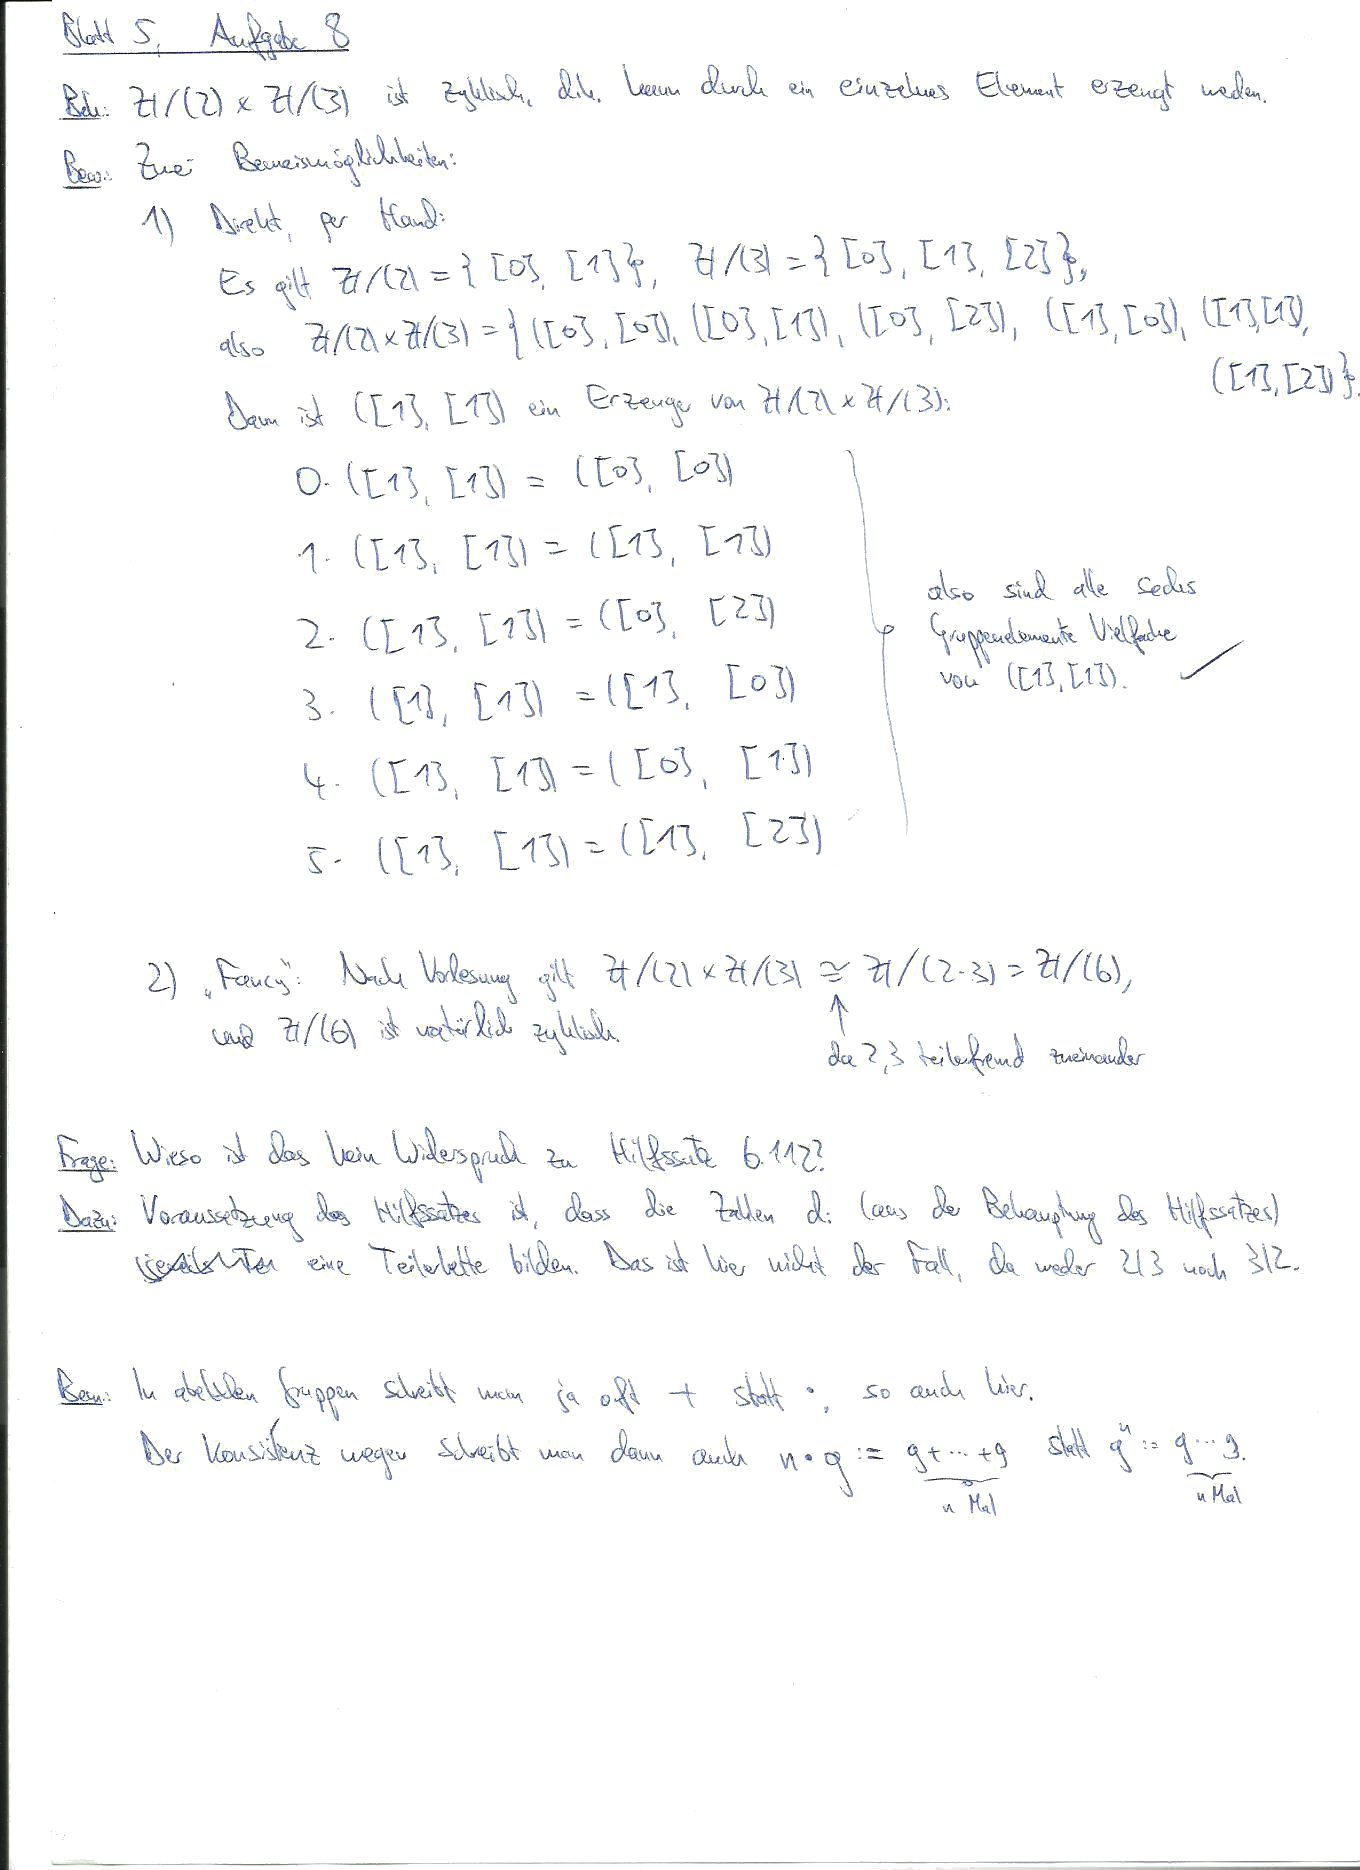 Blatt 5, Aufgabe 8
Beh.: ℤ/(2) × ℤ/(3) ist zyklisch, d.h. kann durch ein einzelnes Element erzeugt werden.
Bew.: Zwei Beweismöglichkeiten:
1) Direkt, per Hand:
Es gilt ℤ/(2) = {[0], [1]}, ℤ/(3) = {[0], [1], [2]},
also ℤ/(2) × ℤ/(3) = {([0], [0]), ([0], [1]), ([0], [2]), ([1], [0]), ([1], [1]),
([1], [2])}.
Dann ist ([1], [1]) ein Erzeuger von ℤ/(2) × ℤ/(3):
0· ([1], [1]) = ([0], [0])
1· ([1], [1]) = ([1], [1])
2· ([1], [1]) = ([0], [2])
3· ([1], [1]) = ([1], [0])
4· ([1], [1]) = ([0], [1])
5· ([1], [1]) = ([1], [2])
also sind alle sechs
Gruppenelemente Vielfache
von ([1], [1]). ✓
2) „Fancy“: Nach Vorlesung gilt ℤ/(2) × ℤ/(3) ≅ ℤ/(2·3) = ℤ/(6),
und ℤ/(6) ist natürlich zyklisch.
↑
da 2,3 teilerfremd zueinander
Frage: Wieso ist das kein Widerspruch zu Hilfssatz 6.112?
Dazu: Voraussetzung des Hilfssatzes ist, dass die Zahlen di (aus der Behauptung des Hilfssatzes)
eine Teilerkette bilden. Das ist hier nicht der Fall, da weder 2|3 noch 3|2.
Bem.: In abelschen Gruppen schreibt man ja oft + statt ·, so auch hier.
Der Konsistenz wegen schreibt man dann auch n·g := g+···+g statt gⁿ := g···g.
n Mal n Mal